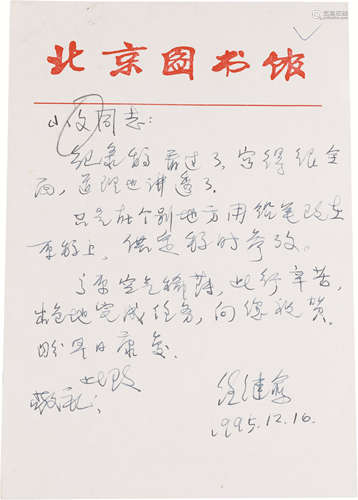 北京图书馆
同志:
纪录稿看过了,写得很全
面,道理也讲透了。
只是在个别地方用铅笔改在
原稿上,供定稿时参考。
了原空气稀薄,此行辛苦,
出色地完成任务,向你祝贺。
盼早日康复。
此致
敬礼!
任继愈
1995.12.16.